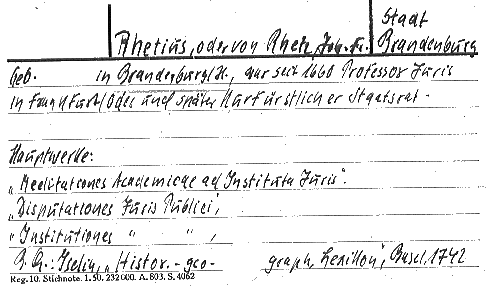 Stadt
Rhetius, oder von Rhetz, Joh. Fr. Brandenburg
Geb. in Brandenburg/H., war seit 1660 Professor Juris
in Frankfurt/Oder und später Kurfürstlicher Staatsrat.
Hauptwerke:
"Meditationes Academicae ad Instituta Juris".
"Disputationes Juris Publici",
"Institutiones " " ,
Iselin, "Histor. - geo- graph. Lexikon", Basel, 1742
Reg. 10. Stichnote. 1. 50. 232000. A. 803. S. 4062